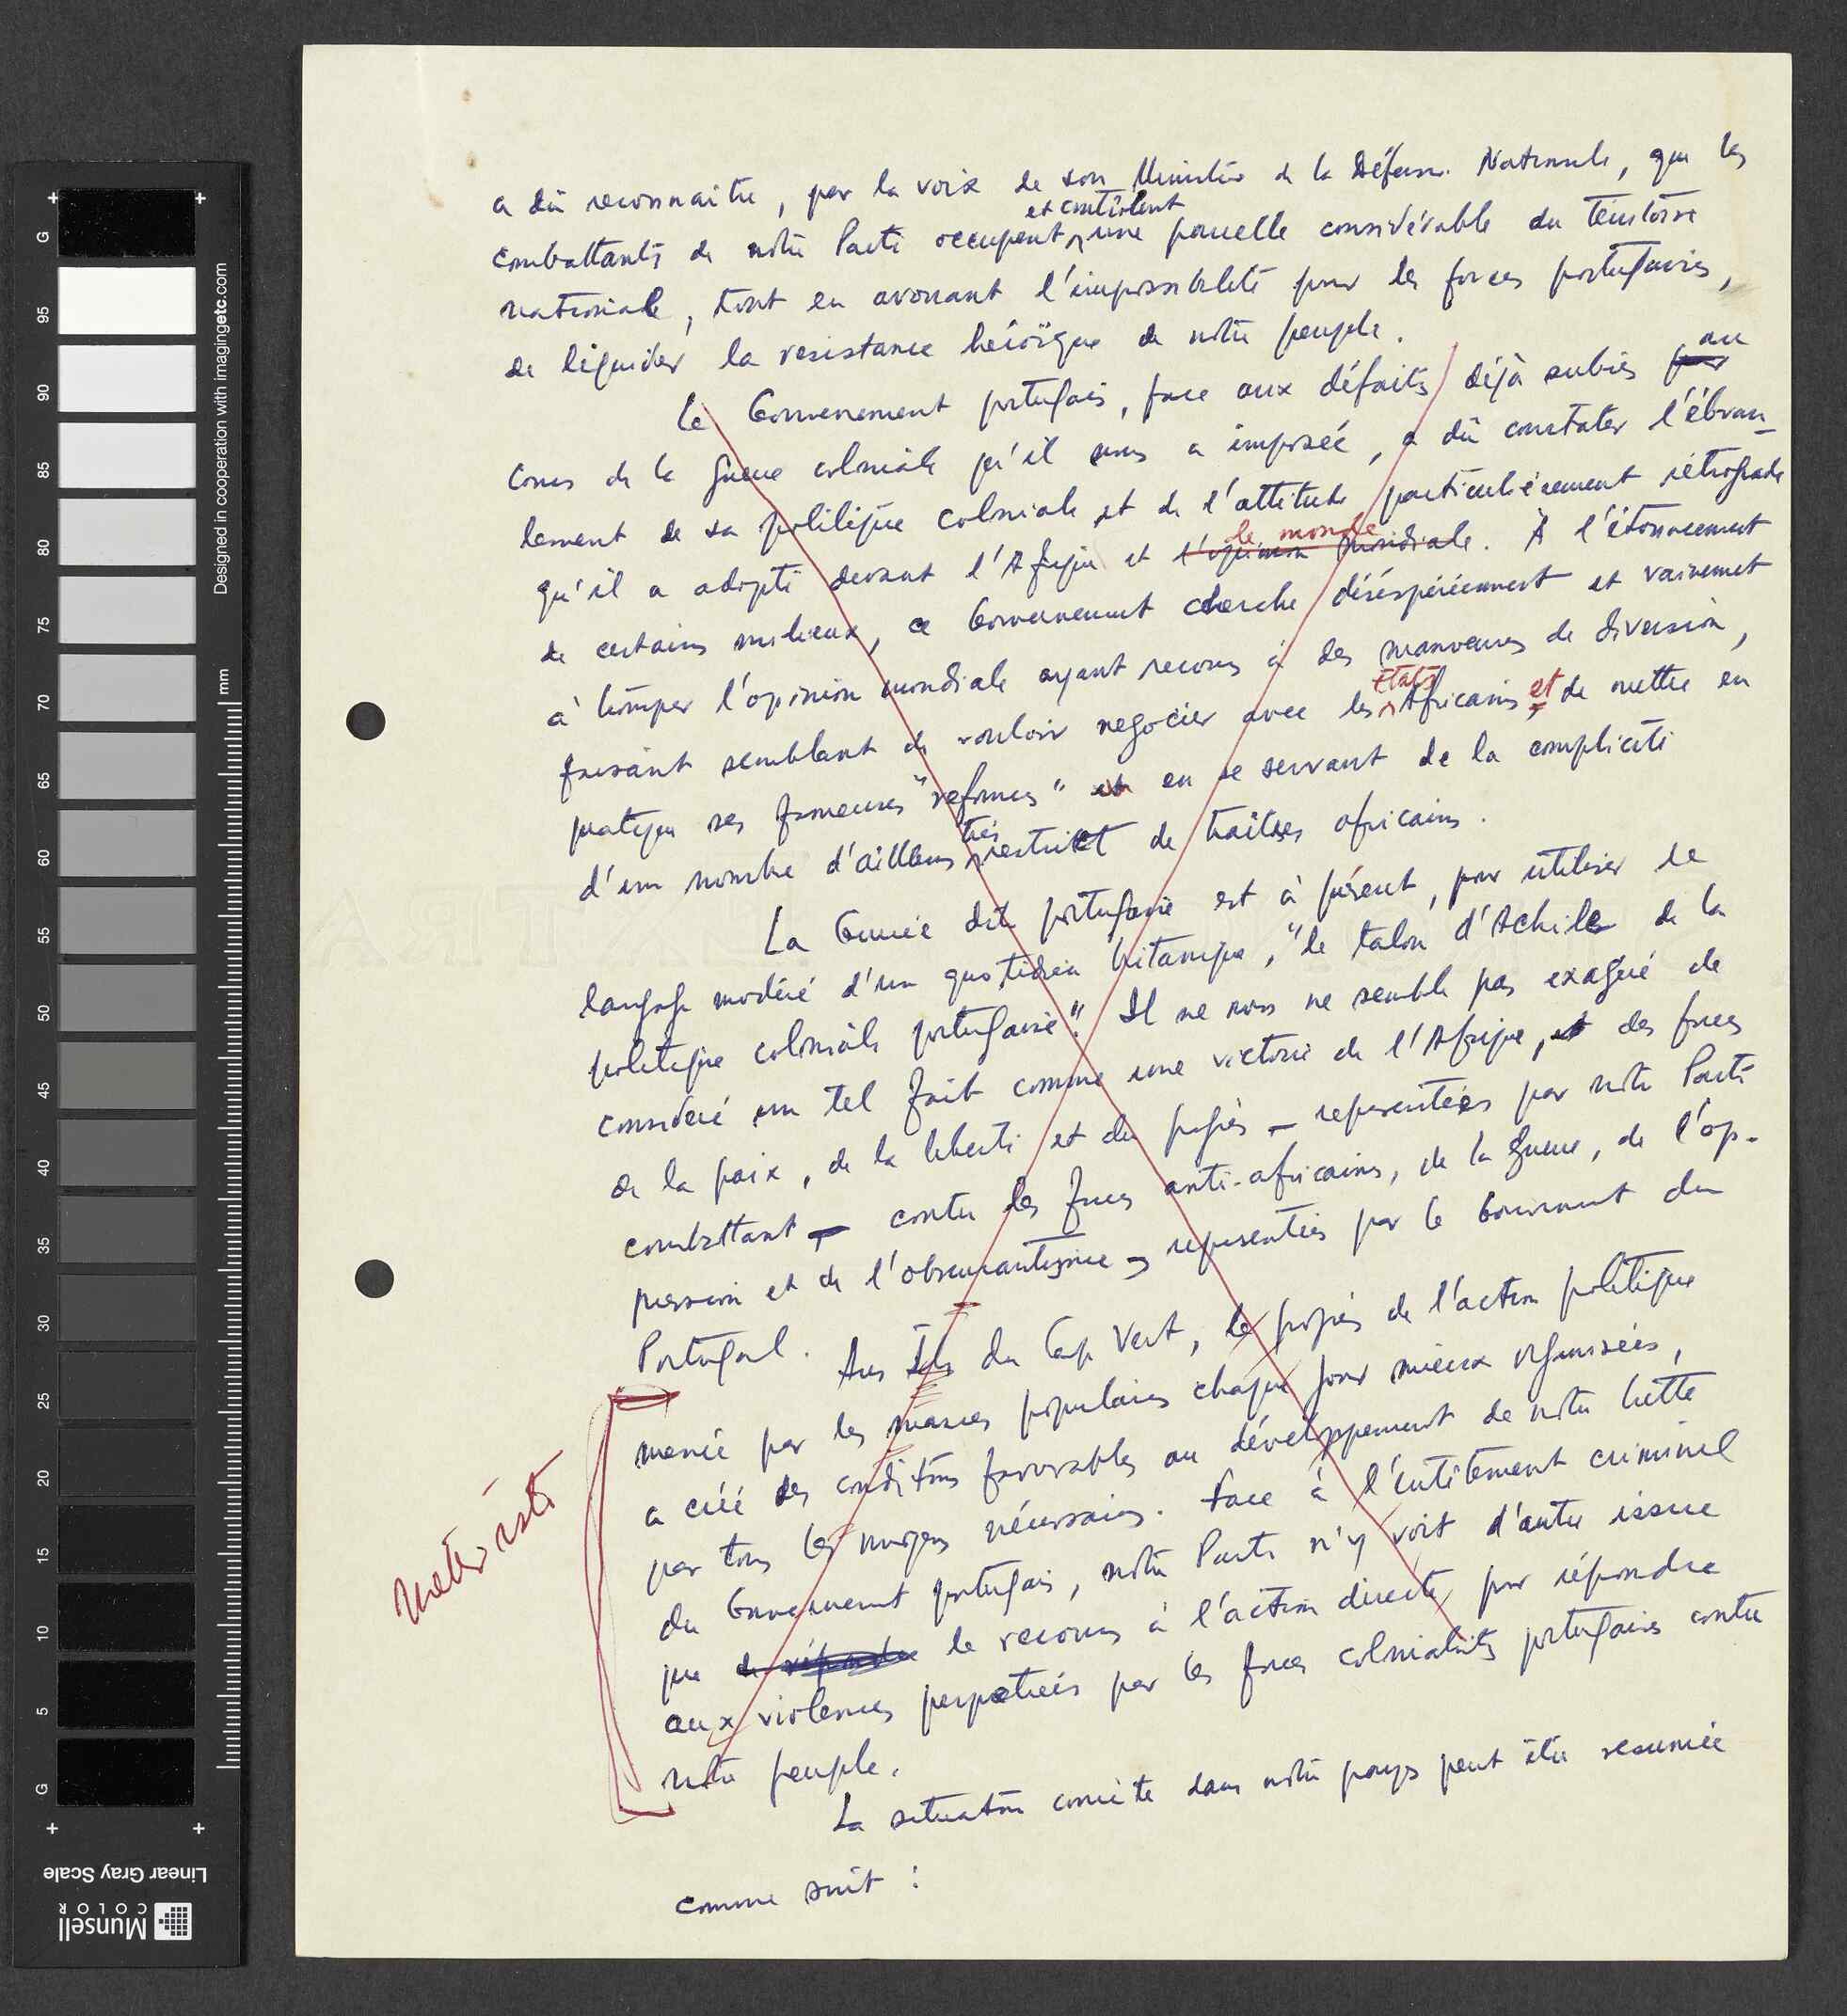 a dû reconnaître, par la voix de son Ministre de la Défense Nationale, que les
et contrôlent
combattants de notre Parti occupent une parcelle considérable du territoire
nationale, tout en avouant l'impossibilité pour les forces portugaises,
de liquider la resistance heroïque de notre peuple.
au
Le Gouvernement portugais, face aux défaits déjà subies par
cours de la guerre coloniale qu'il nous a imposée, a dû constater l'ébran-
lement de sa politique coloniale et de l'attitude particulièrement rétrograde
le monde
qu'il a adopté devant l'Afrique et l'opinion mondiale. À l'étonnement
de certains milieux, ce Gouvernement cherche désespérément et vainement
à tromper l'opinion mondiale ayant recours à des manoeuvres de diversion,
Etats
faisant semblant de vouloir negocier avec les Africains, et de mettre en
pratique ses fameuses "reformes" et en se servant de la complicité
très
d'un nombre d'ailleurs restrict de traîtres africains.
La Guinée dite portugaise est à présent, pour utiliser le
langage modéré d'un quotidien britanique, "le talon d'Achiles de la
politique coloniale portugaise". Il ne nous ne semble pas exagéré de
consideré un tel fait comme une victoire de l'Afrique, et des forces
de la paix, de la liberté et du progrès – representées par notre Parti
combattant – contre les forces anti-africaines, de la guerre, de l'op-
pression et de l'obscurantisme – representées par le Gouvernement du
Portugal.
Aux Iles du Cap Vert, le progrès de l'action politique
menée par les masses populaires chaque jour mieux organisées,
a créé des conditions favorables au développement de notre lutte
par tous les moyens nécessaires. Face à l'entêtement criminel
du Gouvernement portugais, notre Parti n'y voit d'autre issue
que de répondre le recours à l'action directe, pour répondre
aux violences perpetrées par les forces colonialistes portugaises contre
notre peuple.
La situation concrète dans notre pays peut être resumée
comme suit :
meter isto
Designed in cooperation with imagingetc.com
mm
G
95
90
85
80
75
70
65
60
55
50
45
40
35
30
25
20
15
10
5
G
Linear Gray Scale
Munsell
COLOR